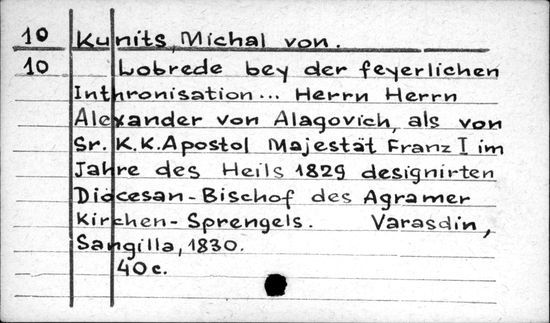 10 Kunits, Michal von.
10 Lobrede bey der feyerlichen
Inthronisation... Herrn Herrn
Alexander von Alagovich, als von
Sr. K.K. Apostol Majestät Franz I im
Jahre des Heils 1829 designirten
Diöcesan-Bischof des Agramer
Kirchen-Sprengels. Varasdin,
Sangilla, 1830.
40 c.